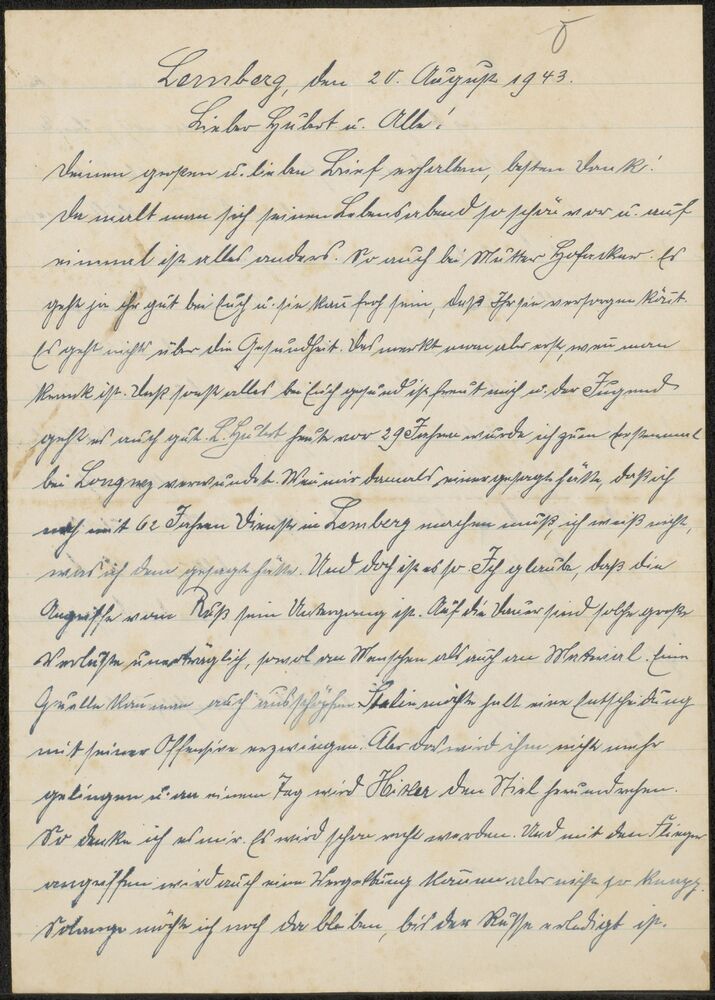 Lemberg, den 20. August 1943.
Lieber Hubert u. Alle!
Deinen großen u. lieben Brief erhalten, besten Dank!
Da malt man sich seinen Lebensabend so schön vor u. auf
einmal ist alles anders. So auch bei Mutter Hofacker. Es
geht ja ihr gut bei Euch u. sie kañ froh sein, daß Ihr sie versorgen köñt.
Es geht nichts über die Gesundheit. Das merkt man aber erst, weñ man
krank ist. Daß sonst alles bei Euch gesund ist freut mich u. der Jugend
geht es auch gut. L. Hubert heute vor 29 Jahren wurde ich zum Erstenmal
bei Longwy verwundet. Weñ mir damals einer gesagt hätte, daß ich
noch mit 62 Jahren Dienst in Lemberg machen muß, ich weiß nicht,
was ich dem gesagt hätte. Und doch ist es so. Ich glaube, daß die
Angriffe vom Ruß sein Untergang ist. Auf die Dauer sind solche große
Verluste unerträglich, sowol an Menschen als auch an Material. Eine
Quelle kañ man auch ausschöpfen. Stalin möchte halt eine Entscheidung
mit seiner Offensive erzwingen. Aber das wird ihm nicht mehr
gelingen u. an einem Tag wird Hitler den Stiel herumdrehen.
So denke ich es mir. Es wird schon recht werden. Und mit den Flieger
angriffen wird auch eine Vergeltung kom̃en aber nicht zu knapp.
Solange möchte ich noch da bleiben, bis der Russe erledigt ist.